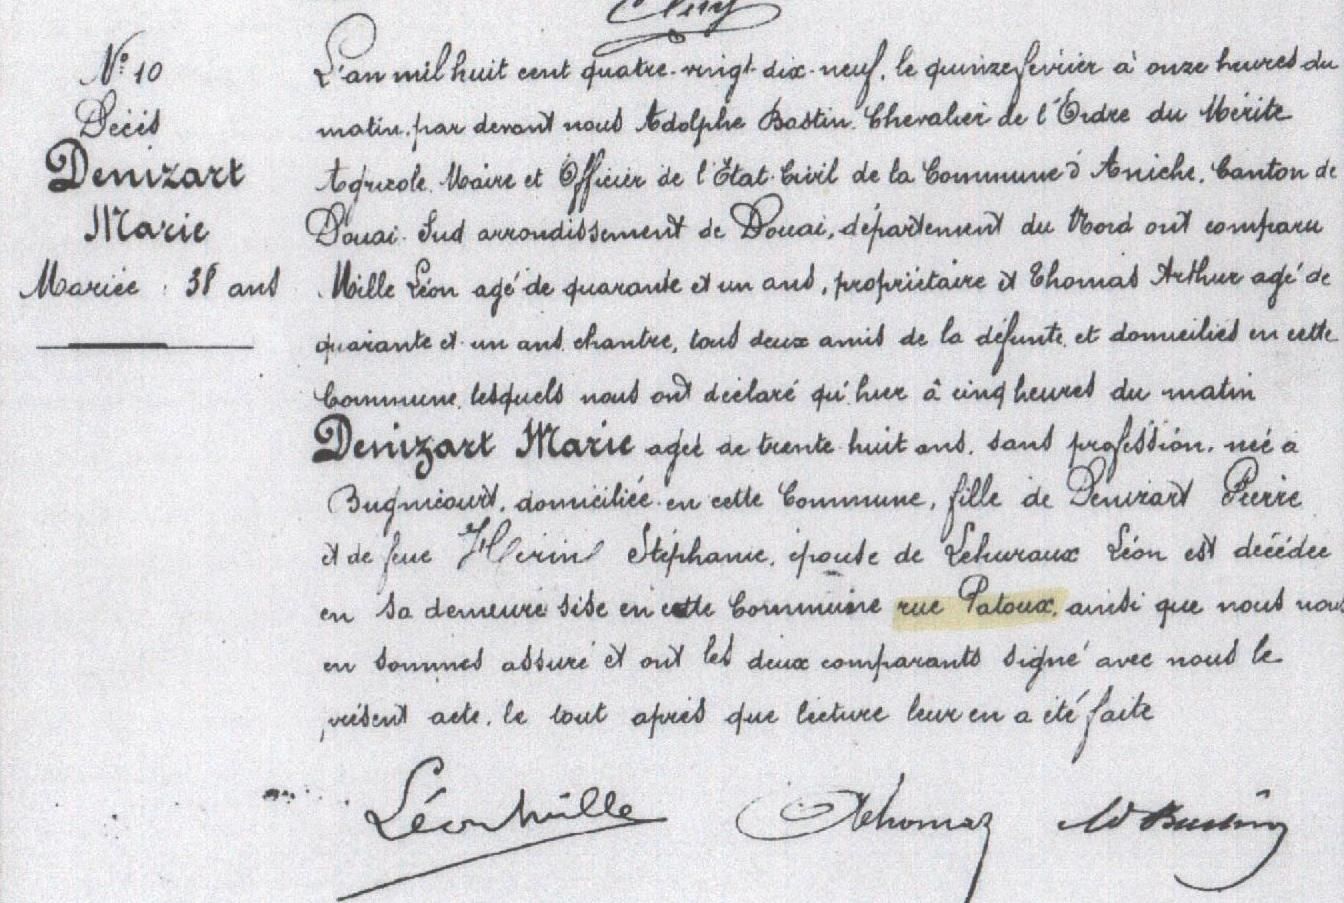 N° 10
Décès
Denizart
Marie
Mariée : 38 ans
L'an mil huit cent quatre-vingt-dix-neuf, le quinze février à onze heures du
matin, par devant nous Adolphe Bastin, Chevalier de l'Ordre du Mérite
Agricole, Maire et Officier de l'État-Civil de la Commune d'Aniche, Canton de
Douai-Sud arrondissement de Douai, département du Nord ont comparu
Mille Léon agé de quarante et un ans, propriétaire et Thomas Arthur agé de
quarante et un ans, chantre, tous deux amis de la défunte, et domiciliés en cette
Commune, lesquels nous ont déclaré qu'hier à cinq heures du matin
Denizart Marie agée de trente-huit ans, sans profession, née à
Bugnicourt, domiciliée en cette Commune, fille de Denizart Pierre
et de feue Herin Stéphanie, épouse de Lehuraux Léon est décédée
en sa demeure sise en cette Commune rue Patoux, ainsi que nous nous
en sommes assuré et ont les deux comparants signé avec nous le
présent acte, le tout après que lecture leur en a été faite
Léon Mille AThomas Ad Bastin